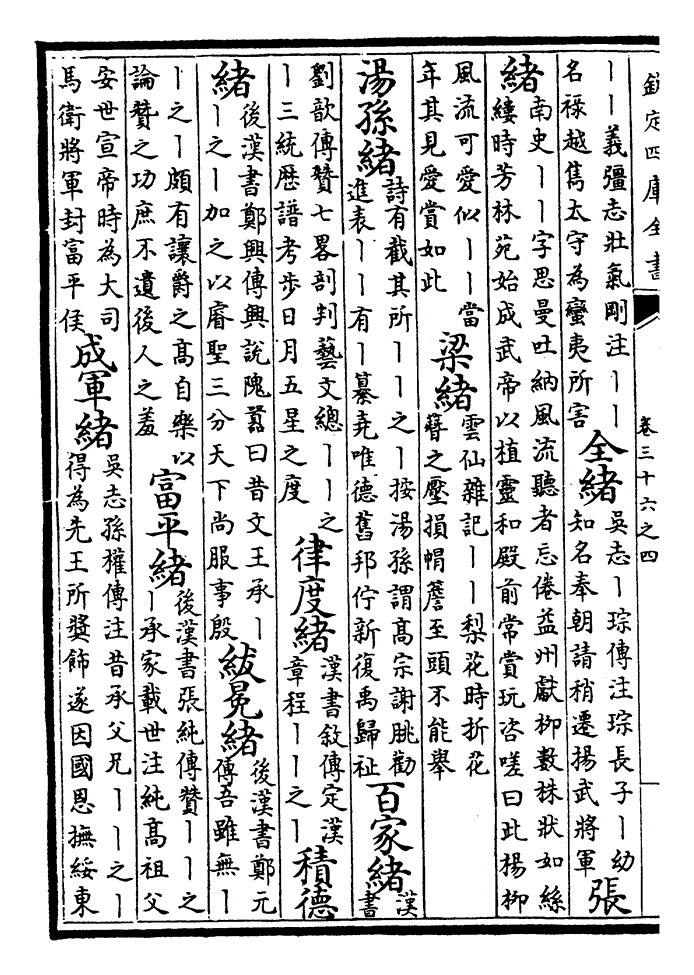 欽定四庫全書
卷三十六之四
丨丨義彊志壯氣剛注丨丨
名祿越雋太守為蠻夷所害
全緒
吳志丨琮傳注琮長子丨幼
知名奉朝請稍遷揚武將軍
張
緒
南史丨丨字思曼吐納風流聽者忘倦益州獻栁數株狀如絲
縷時芳林苑始成武帝以植靈和殿前常賞玩咨嗟曰此楊栁
風流可愛似丨丨當
年其見愛賞如此
梁緒
雲仙雜記丨丨梨花時折花
簪之壓損帽簷至頭不能舉
湯孫緒
詩有截其所丨丨之丨按湯孫謂高宗謝朓勸
進表丨丨有丨纂堯唯德舊邦佇新復禹歸祉
百家緒
漢
書
劉歆傳贊七畧剖判藝文總丨丨之
丨三統厯譜考步日月五星之度
律度緒
漢書敘傳定漢
章程丨丨之丨
積德
緒
後漢書鄭興傳興說隗囂曰昔文王承丨
丨之丨加之以睿聖三分天下尚服事殷
紱冕緒
後漢書鄭元
傳吾雖無丨
丨之丨頗有讓爵之高自樂以
論贊之功庶不遺後人之羞
富平緒
後漢書張純傳贊丨丨之
丨承家載世注純高祖父
安世宣帝時為大司
馬衛將軍封富平侯
成軍緒
吳志孫權傳注昔承父兄丨丨之丨
得為先王所奬飾遂因國恩撫綏東